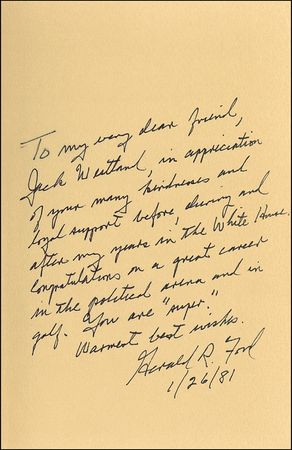 To my very dear friend,
Jack Westland, in appreciation
of your many kindnesses and
loyal support before, during and
after my years in the White House.
Congratulations on a great career
in the political arena and in
golf. You are "super."
Warmest best wishes.
Gerald R. Ford
1/26/81